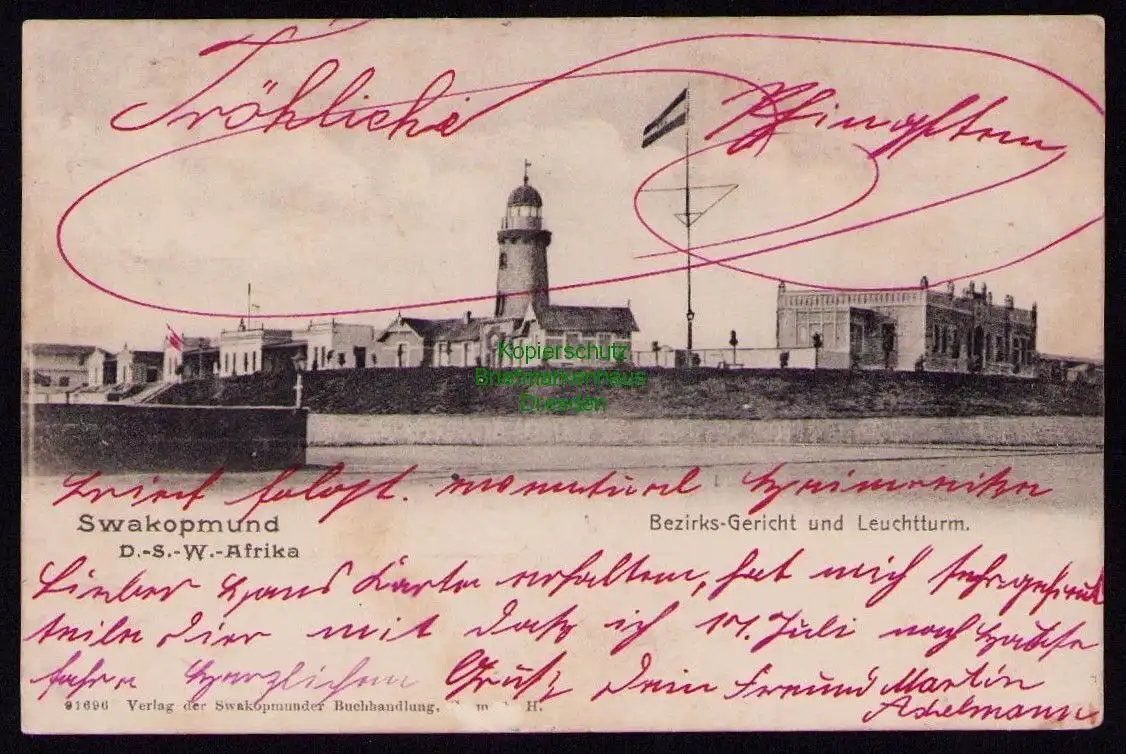 Fröhliche Pfingsten
Kopierschutz
Briefmarkenhaus
Dresden
Brief folgt.
Swakopmund
D.-S.-W.-Afrika
Bezirks-Gericht und Leuchtturm.
Lieber Hans Karte erhalten, hat mich sehr gefreut
teile Dir mit daß ich 17. Juli nach Hause
fahre Herzlichen Gruß Dein Freund Martin
Adelmann
91696 Verlag der Swakopmunder Buchhandlung, G. m. b. H.